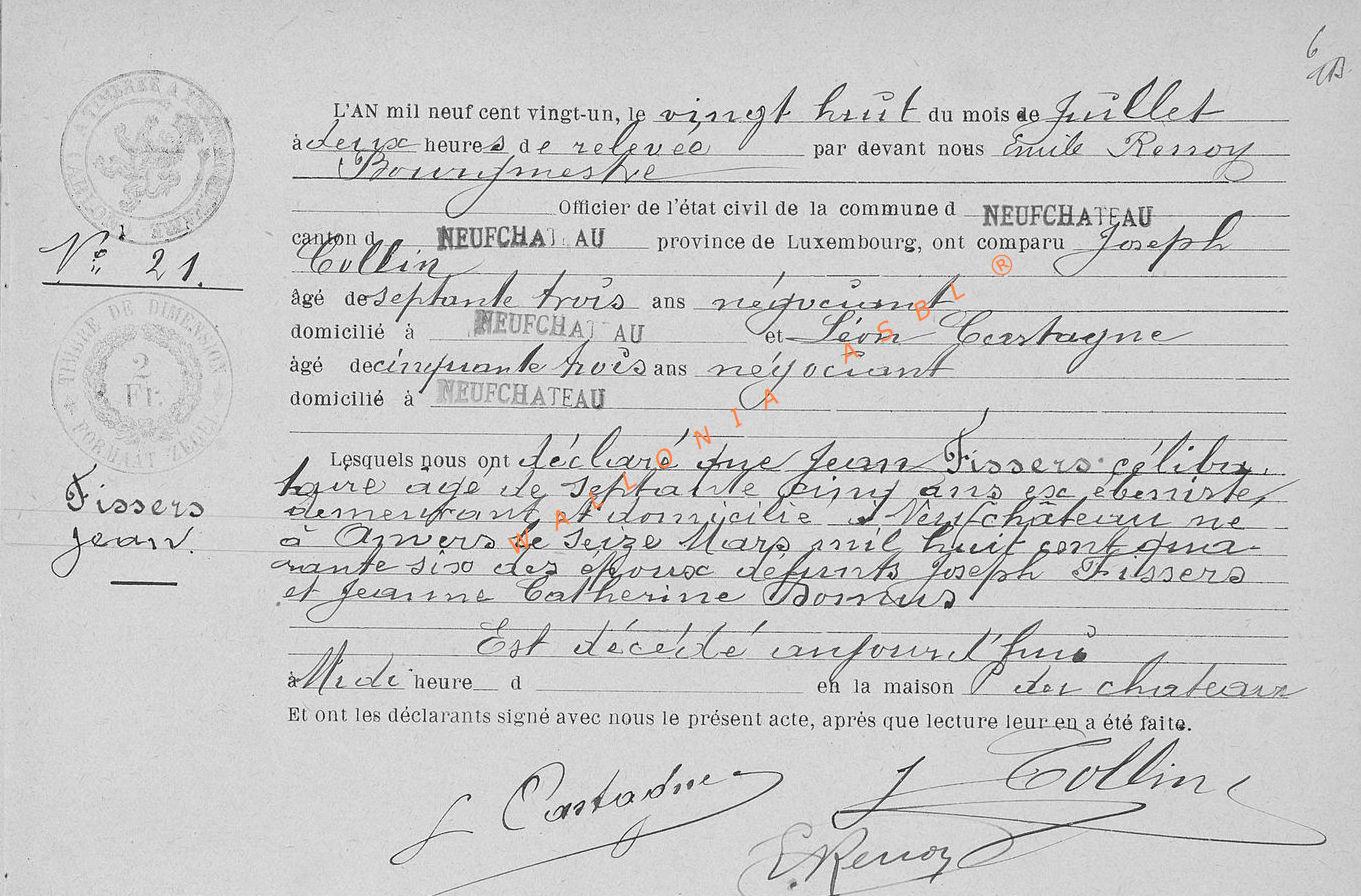 6
L'AN mil neuf cent vingt-un, le vingt huit du mois de Juillet
à deux heures de relevée par devant nous Emile Renoy
Bourgmestre
Officier de l'état civil de la commune d NEUFCHATEAU
canton d NEUFCHATEAU province de Luxembourg, ont comparu Joseph
Collin
âgé de septante trois ans négociant
domicilié à NEUFCHATEAU et Léon Castagne
âgé de cinquante trois ans négociant
domicilié à NEUFCHATEAU
Lesquels nous ont déclaré que Jean Fissers céliba-
taire agé de septante cinq ans ex ébeniste,
demeurant et domicilié à Neufchâteau né
à Anvers le seize Mars mil huit cent qua-
rante six des époux défunts Joseph Fissers
et Jeanne Catherine
Est décédé aujourd'hui
à Midi heure d en la maison du chateau
Et ont les déclarants signé avec nous le présent acte, après que lecture leur en a été faite.
L Castagne J Collin
E. Renoy
N° 21.
TIMBRE DE DIMENSION
2
Fr.
FORMAAT ZEGEL
Fissers
Jean.
WALLONIA ASBL ®